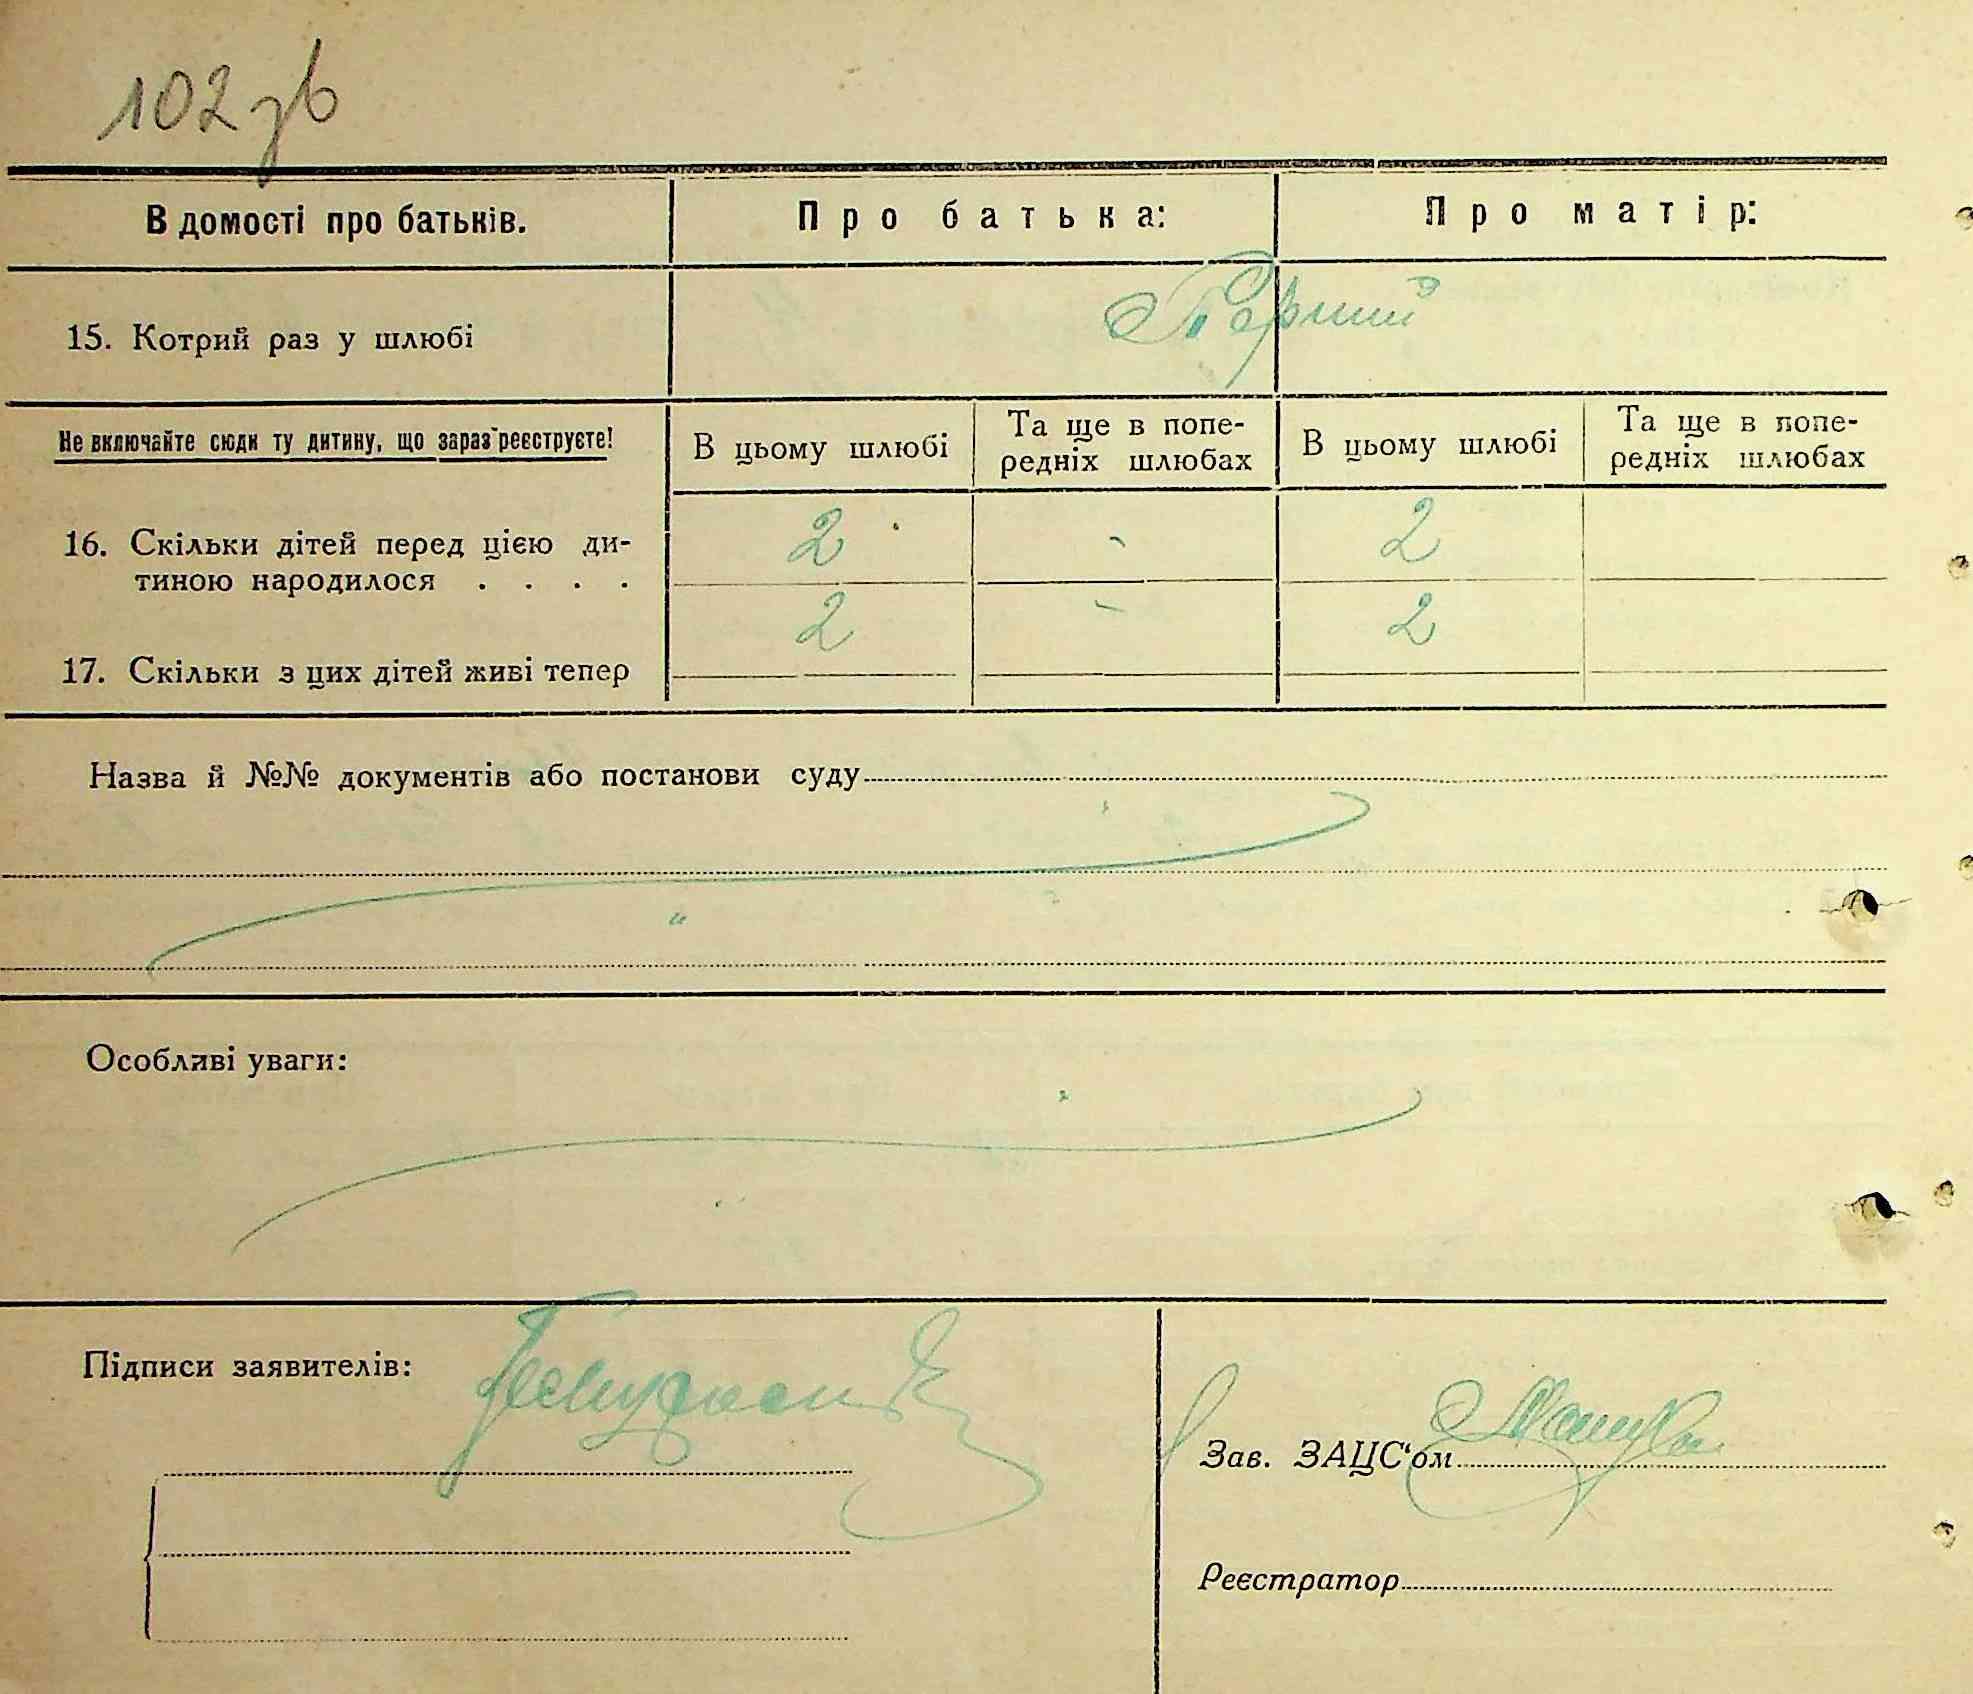 102 зв
В домості про батьків.
Про батька:
Про матір:
15. Котрий раз у шлюбі
Перший
Не включайте сюди ту дитину, що зараз реєструєте!
В цьому шлюбі
Та ще в попе-
редніх шлюбах
В цьому шлюбі
Та ще в попе-
редніх шлюбах
16. Скільки дітей перед цією ди-
тиною народилося . . . .
2 - 2
17. Скільки з цих дітей живі тепер
2 - 2
Назва й №№ документів або постанови суду
Особливі уваги:
Підписи заявителів:
Зав. ЗАЦС'ом
Реєстратор